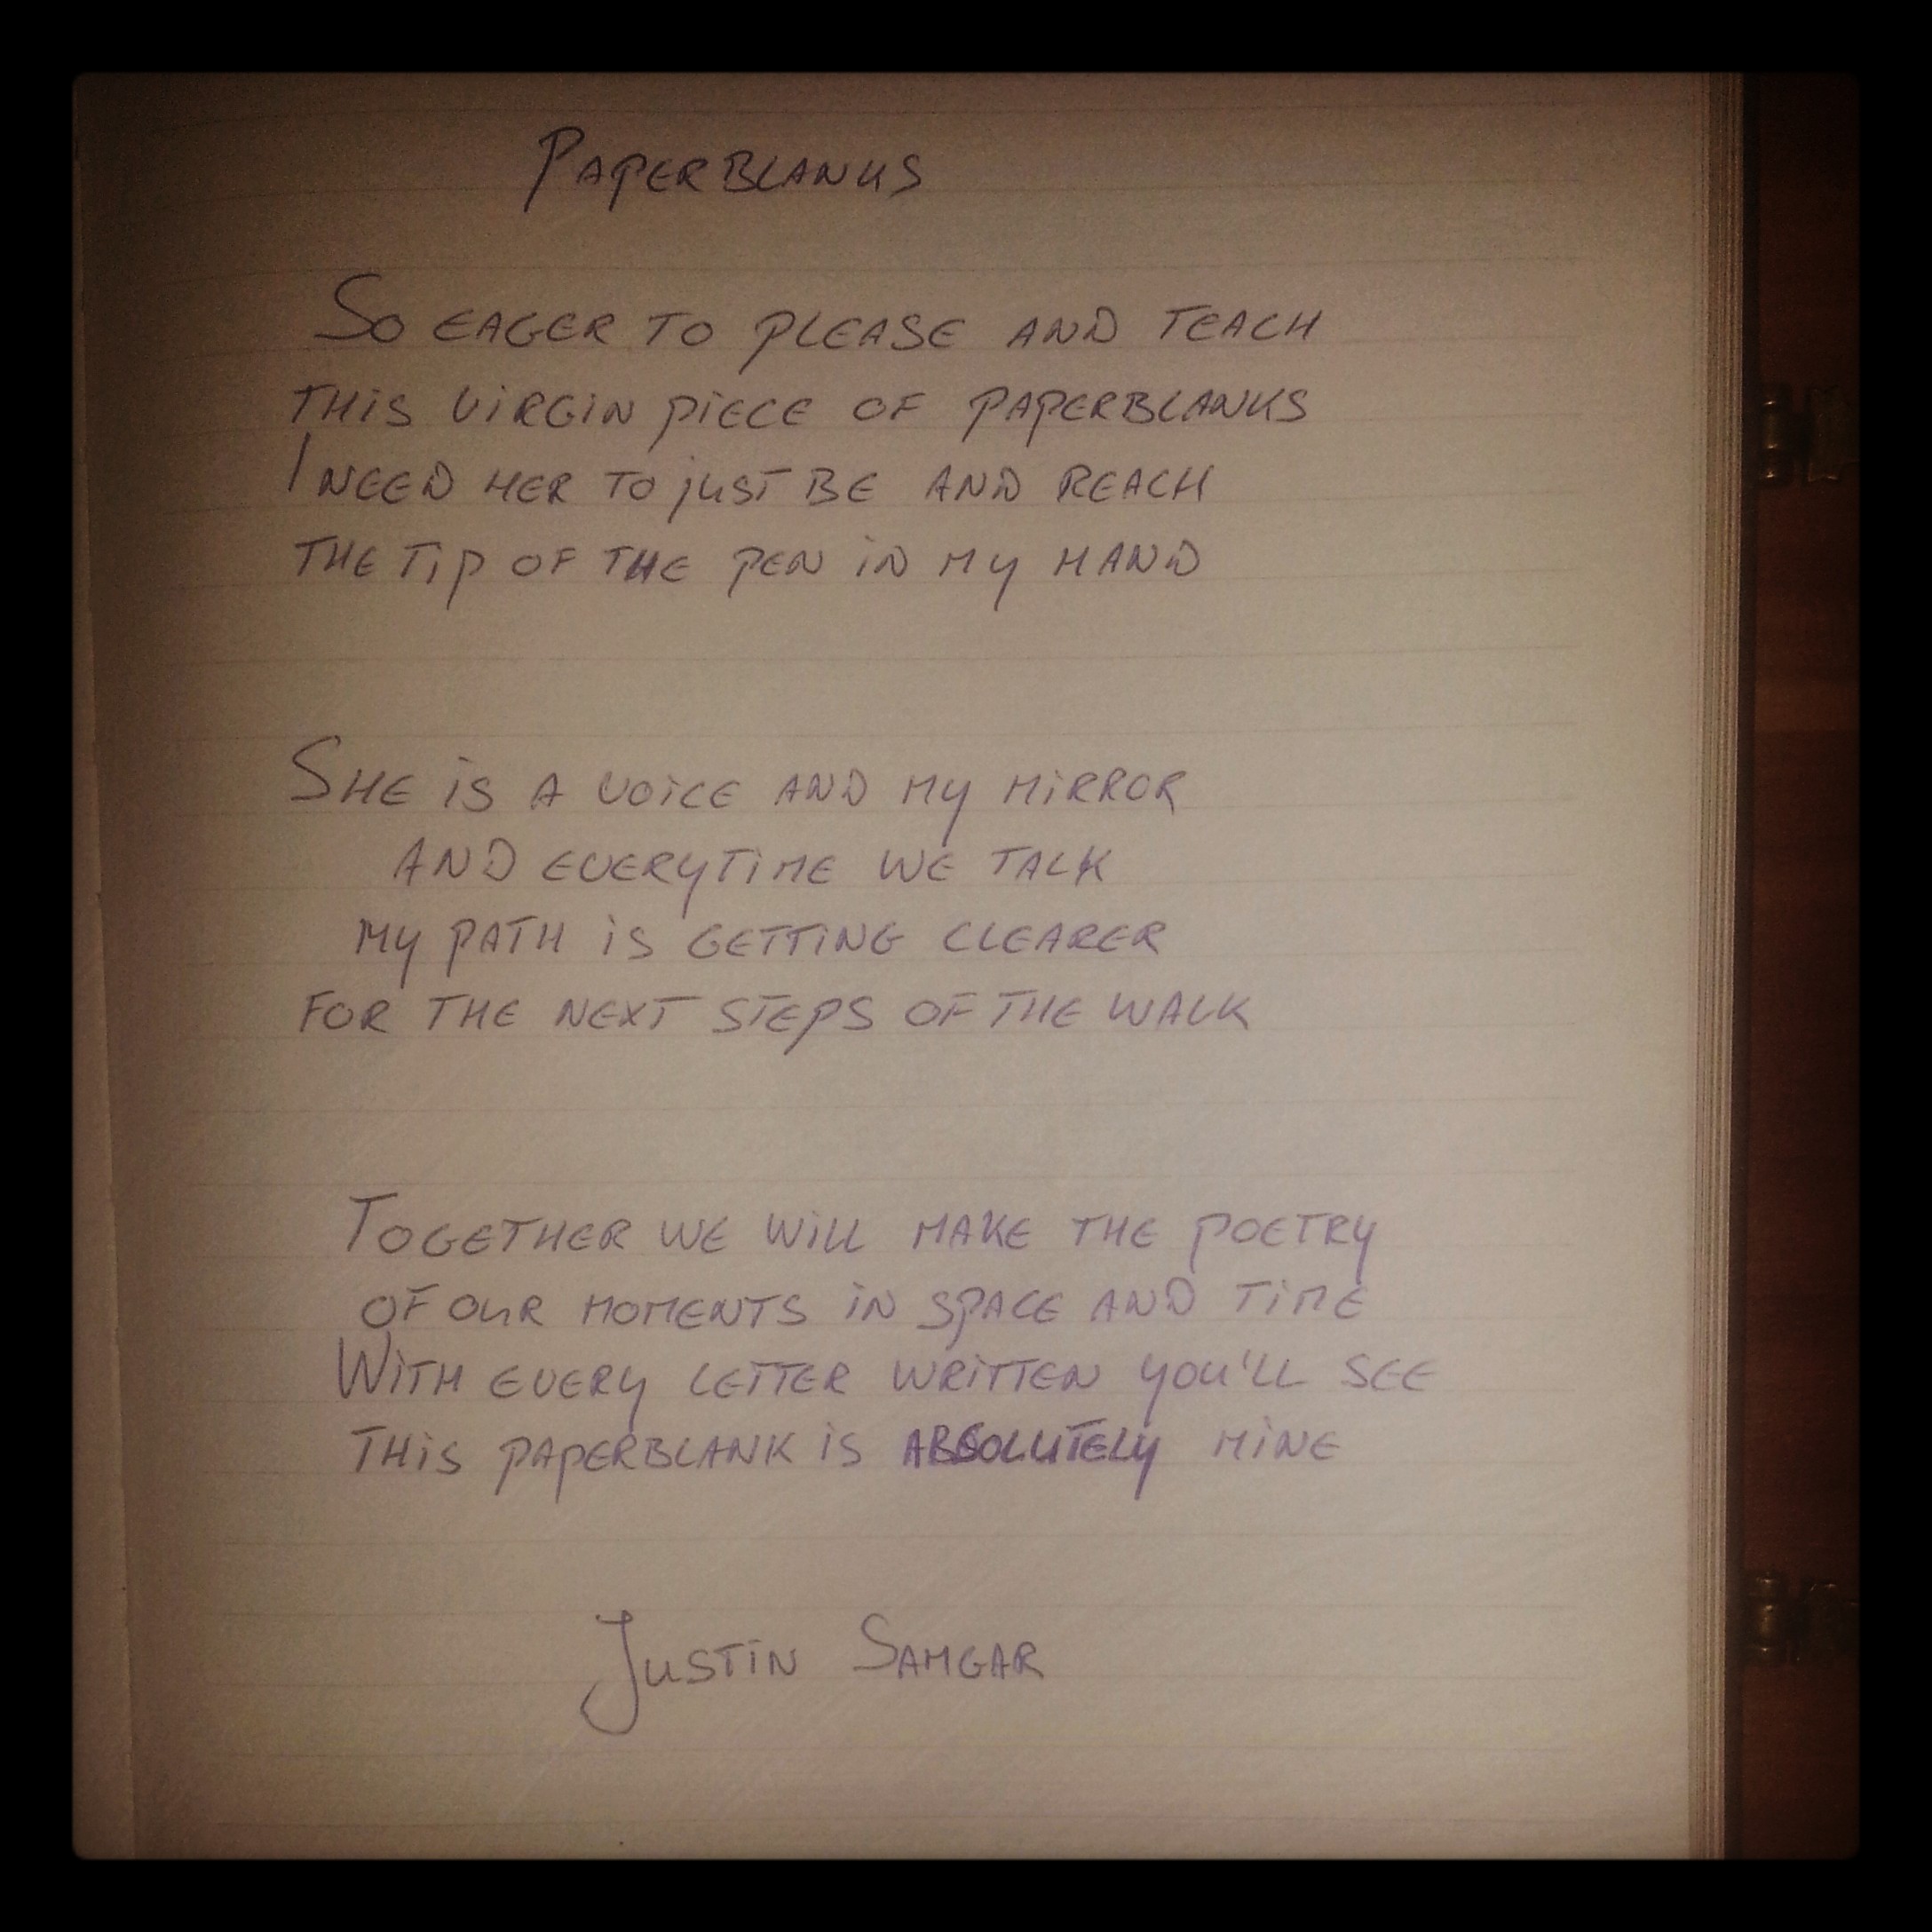 PAPERBLANKS
SO EAGER TO PLEASE AND TEACH
THIS VIRGIN PIECE OF PAPERBLANKS
I NEED HER TO JUST BE AND REACH
THE TIP OF THE PEN IN MY HAND
SHE IS A VOICE AND MY MIRROR
AND EVERYTIME WE TALK
MY PATH IS GETTING CLEARER
FOR THE NEXT STEPS OF THE WALK
TOGETHER WE WILL MAKE THE POETRY
OF OUR MOMENTS IN SPACE AND TIME
WITH EVERY LETTER WRITTEN YOU'LL SEE
THIS PAPERBLANK IS ABSOLUTELY MINE
JUSTIN SAMGAR